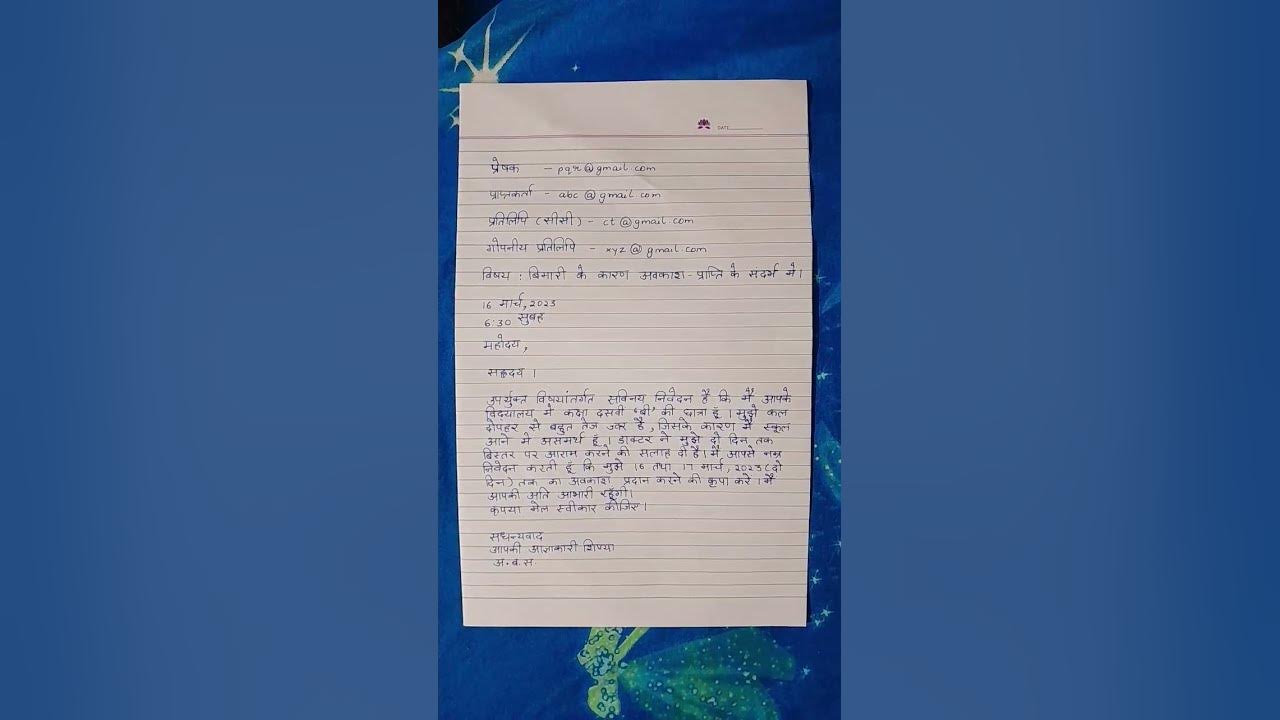 DATE
प्रेषक - pqr@gmail.com
प्राप्तकर्ता - abc@gmail.com
प्रतिलिपि (सीसी) - ct@gmail.com
गोपनीय प्रतिलिपि - xyz@gmail.com
विषय : बिमारी के कारण अवकाश-प्राप्ति के संदर्भ में।
16 मार्च, 2023
6:30 सुबह
महोदय,
सहृदय।
उपर्युक्त विषयांतर्गत सविनय निवेदन है कि मैं आपके
विद्यालय में कक्षा दसवीं 'बी' की छात्रा हूँ। मुझे कल
दोपहर से बहुत तेज ज्वर है, जिसके कारण मैं स्कूल
आने में असमर्थ हूँ। डॉक्टर ने मुझे दो दिन तक
बिस्तर पर आराम करने की सलाह दी है। मैं आपसे नम्र
निवेदन करती हूँ कि मुझे 16 तथा 17 मार्च, 2023 (दो
दिन) तक का अवकाश प्रदान करने की कृपा करें। मैं
आपकी अति आभारी रहूँगी।
कृपया मेल स्वीकार कीजिए।
सधन्यवाद
आपकी आज्ञाकारी शिष्या
अ.ब.स.